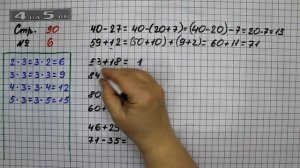 4 на 5.ru
Стр. 90
№ 6
2·3=3·2=6
3·3=3·3=9
4·3=3·4=12
5·3=3·5=15
40-27=40-(20+7)=(40-20)-7=20-7=13
59+12=(50+10)+(9+2)=60+11=71
53+18= 1
84
80
60+
46+25
71-35=